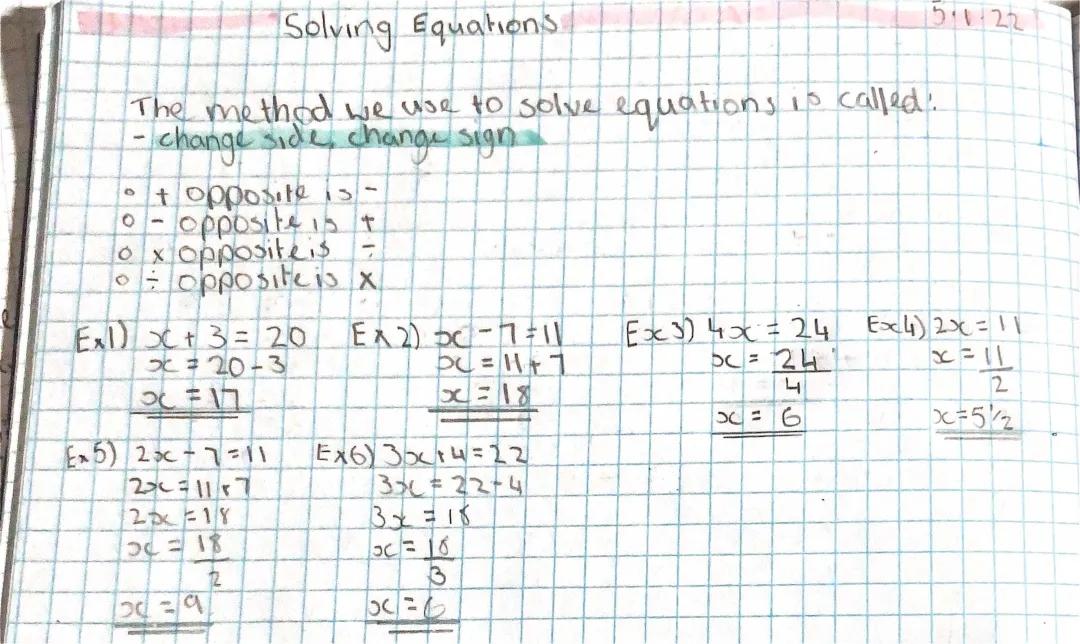 Solving Equations 5.1.22
The method we use to solve equations is called:
- change side, change sign
o + opposite is -
o - opposite is +
o x opposite is ÷
o ÷ opposite is x
Ex1) x + 3 = 20
x = 20 - 3
x = 17
Ex2) x - 7 = 11
x = 11 + 7
x = 18
Ex3) 4x = 24
x = 24
4
x = 6
Ex4) 2x = 11
x = 11
2
x = 5 1/2
Ex5) 2x - 7 = 11
2x = 11 + 7
2x = 18
x = 18
2
x = 9
Ex6) 3x + 4 = 22
3x = 22 - 4
3x = 18
x = 18
3
x = 6